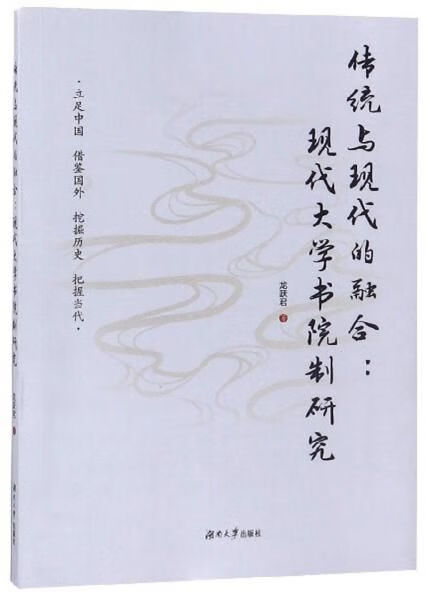 传统与现代的融合：
现代大学书院制研究
龙跃君 著
·立足中国 借鉴国外 挖掘历史 把握当代·
湖南大学出版社
传统与现代的融合：现代大学书院制研究 龙跃君 著